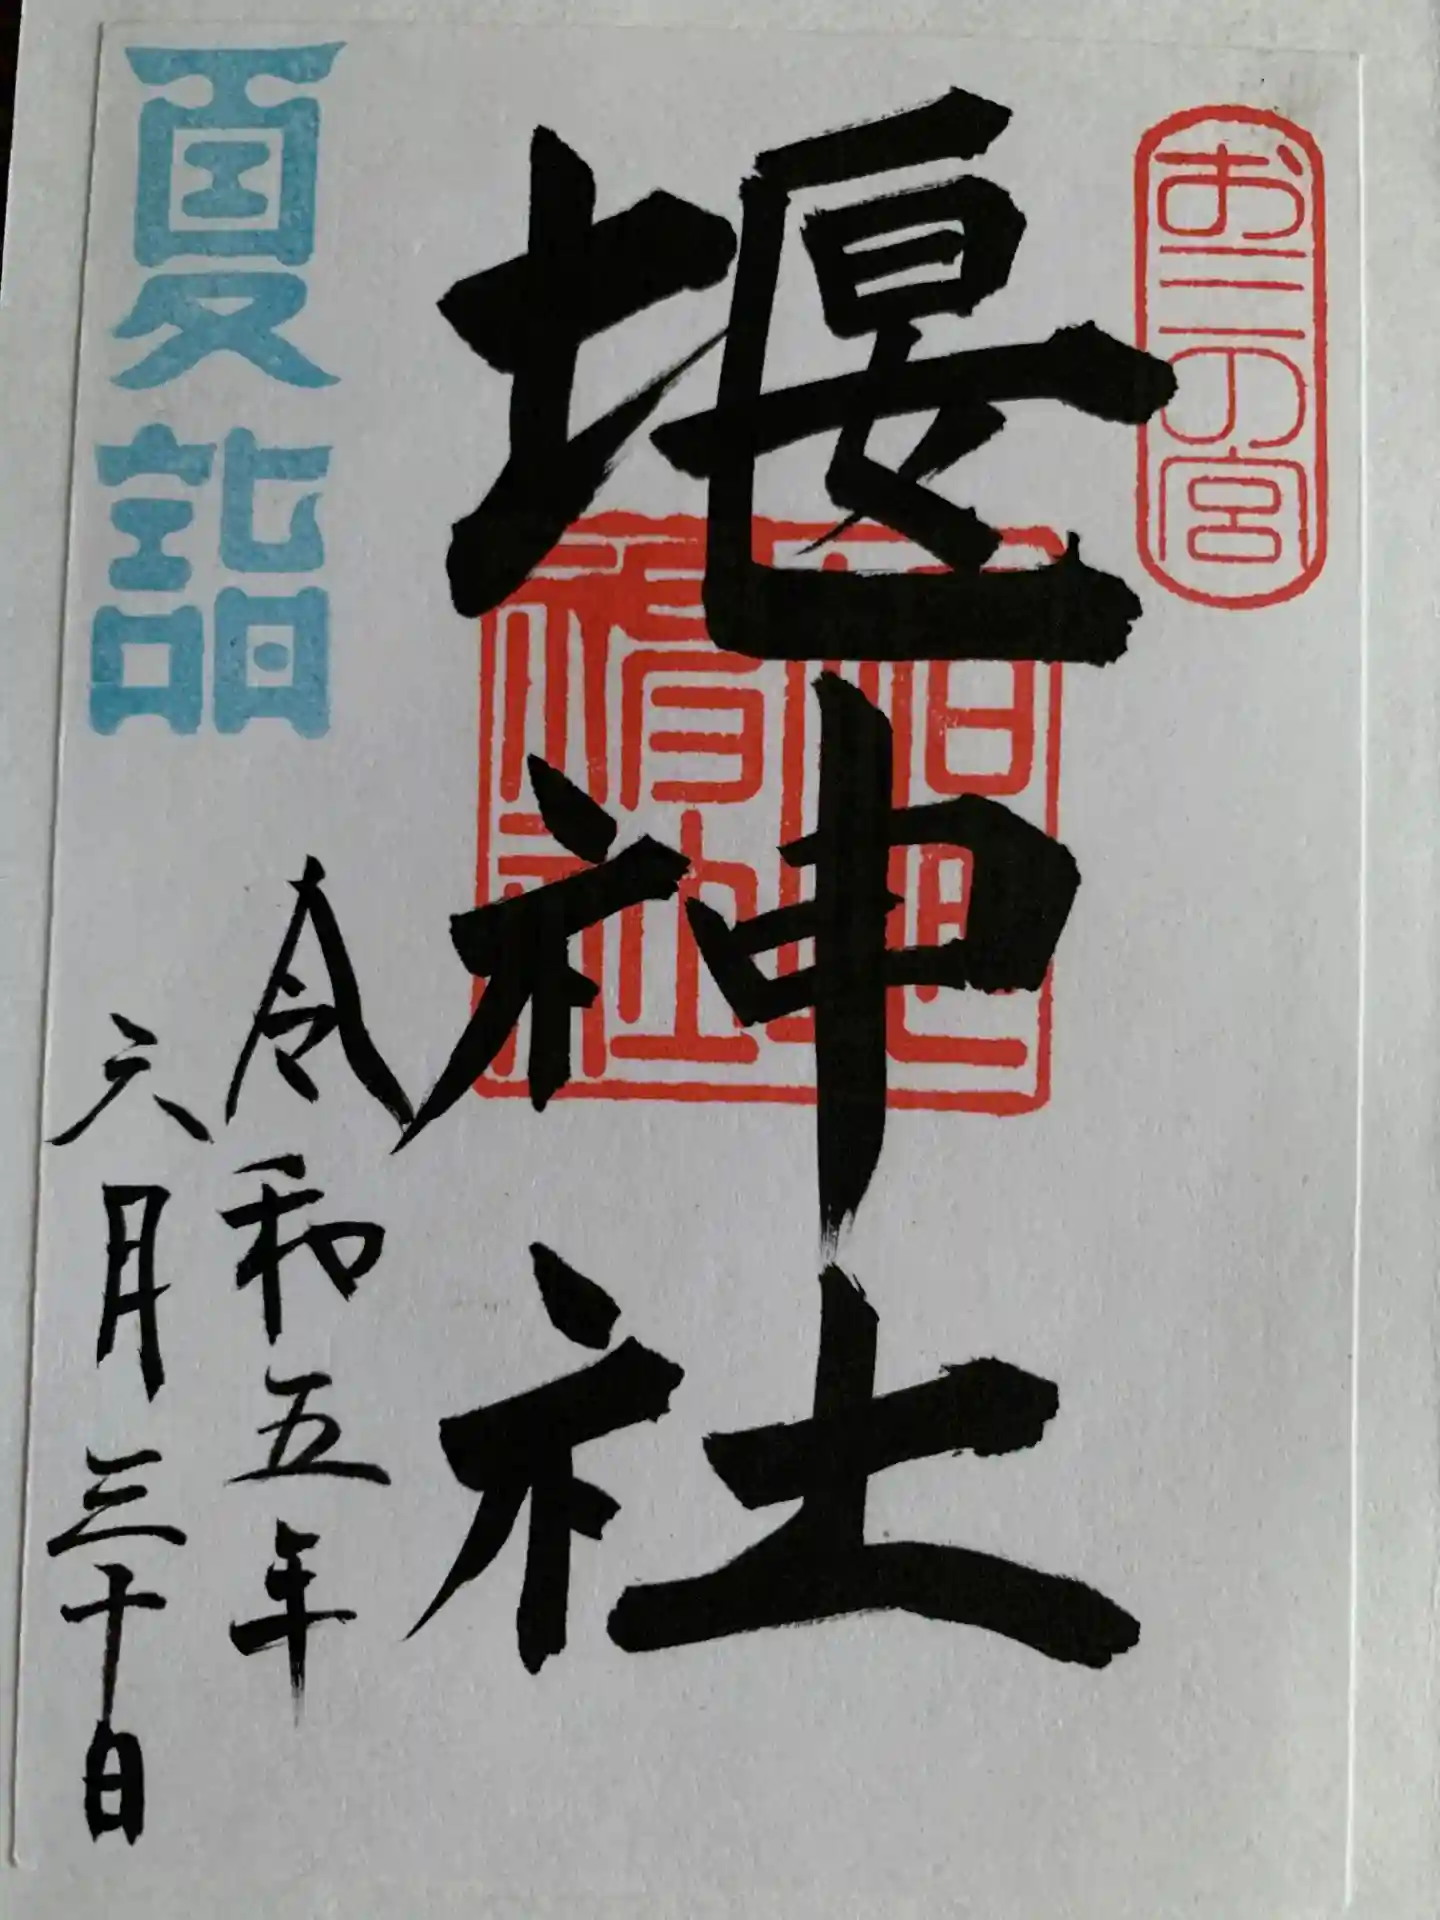 お三の宮
堰神社
夏詣
令和五年
六月三十日